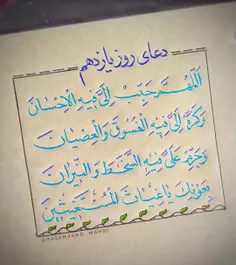 دعای روز یازدهم
اَللّهُمَّ حَبِّبْ اِلَیَّ فیهِ الْاِحْسانَ
وَکَرِّهْ اِلَیَّ فیهِ الْفُسُوقَ وَالْعِصْیانَ
وَحَرِّمْ عَلَیَّ فیهِ السَّخَطَ وَالنّیرانَ
بِعَوْنِکَ یا غِیاثَ الْمُسْتَغیثینَ